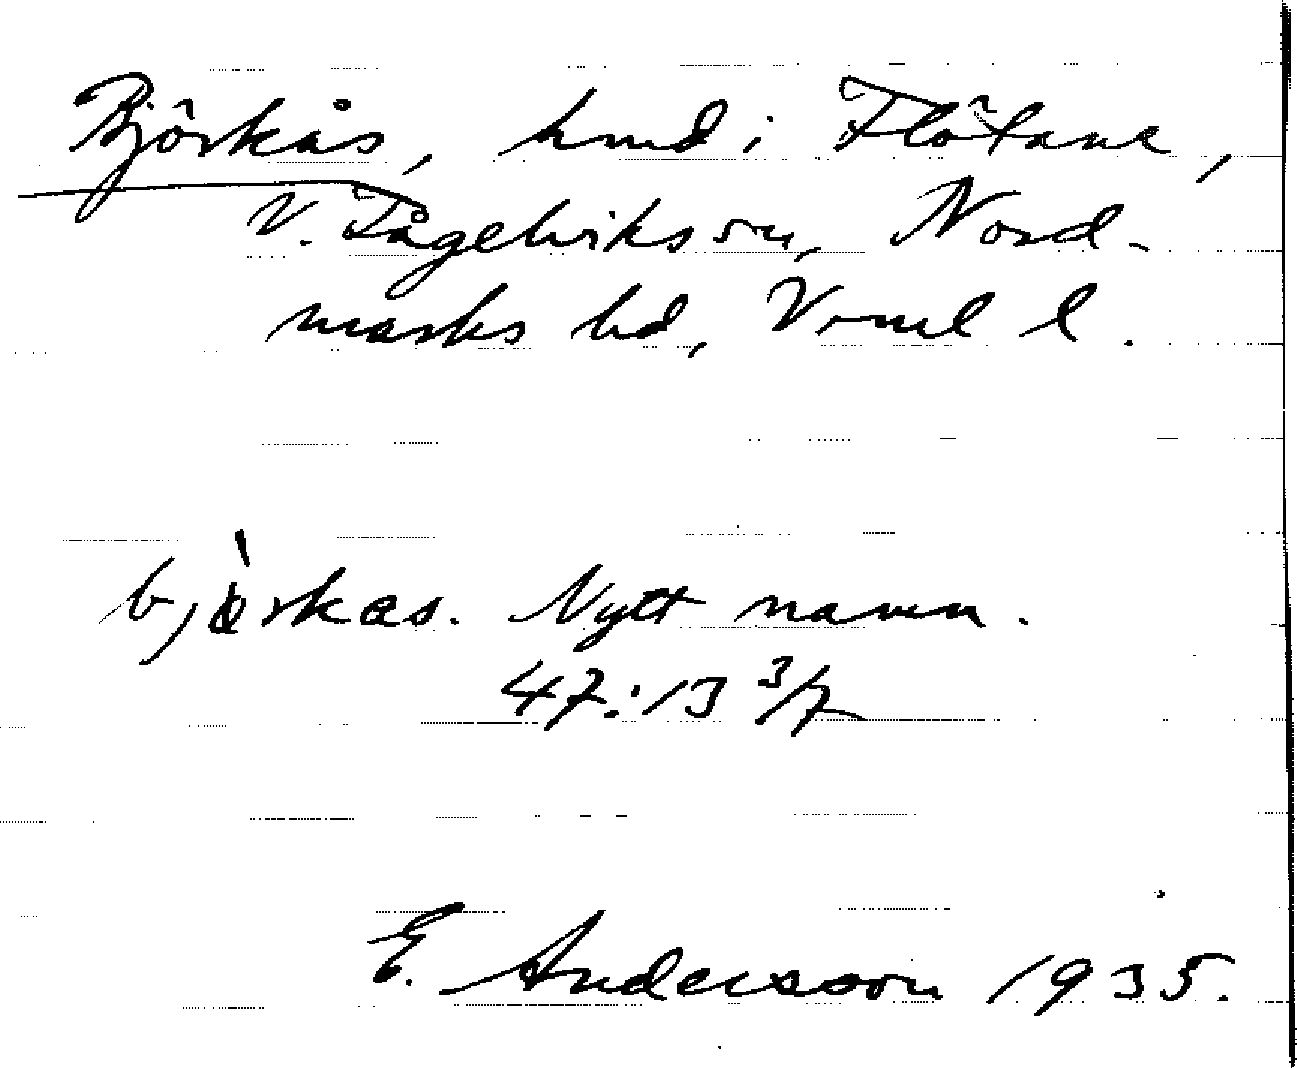 Björkås, hmd i Flötane,
V. Fågelviks sn, Nord-
marks hd, Vrml l.
bjòrkas. Nytt navn.
47:13 3/7
E. Andersson 1935.